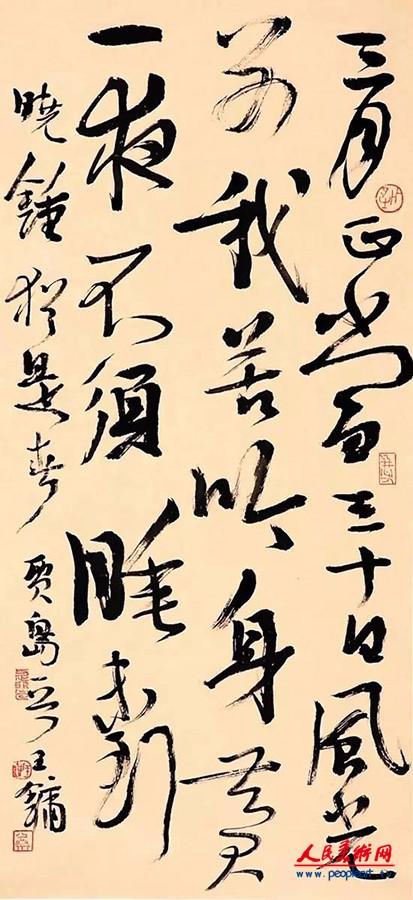 三月正當三十日風光
別我苦吟身共君
一夜不須睡未到
曉鍾猶是春 賈島 王鏞
人民美術网
www.peopleart.tv